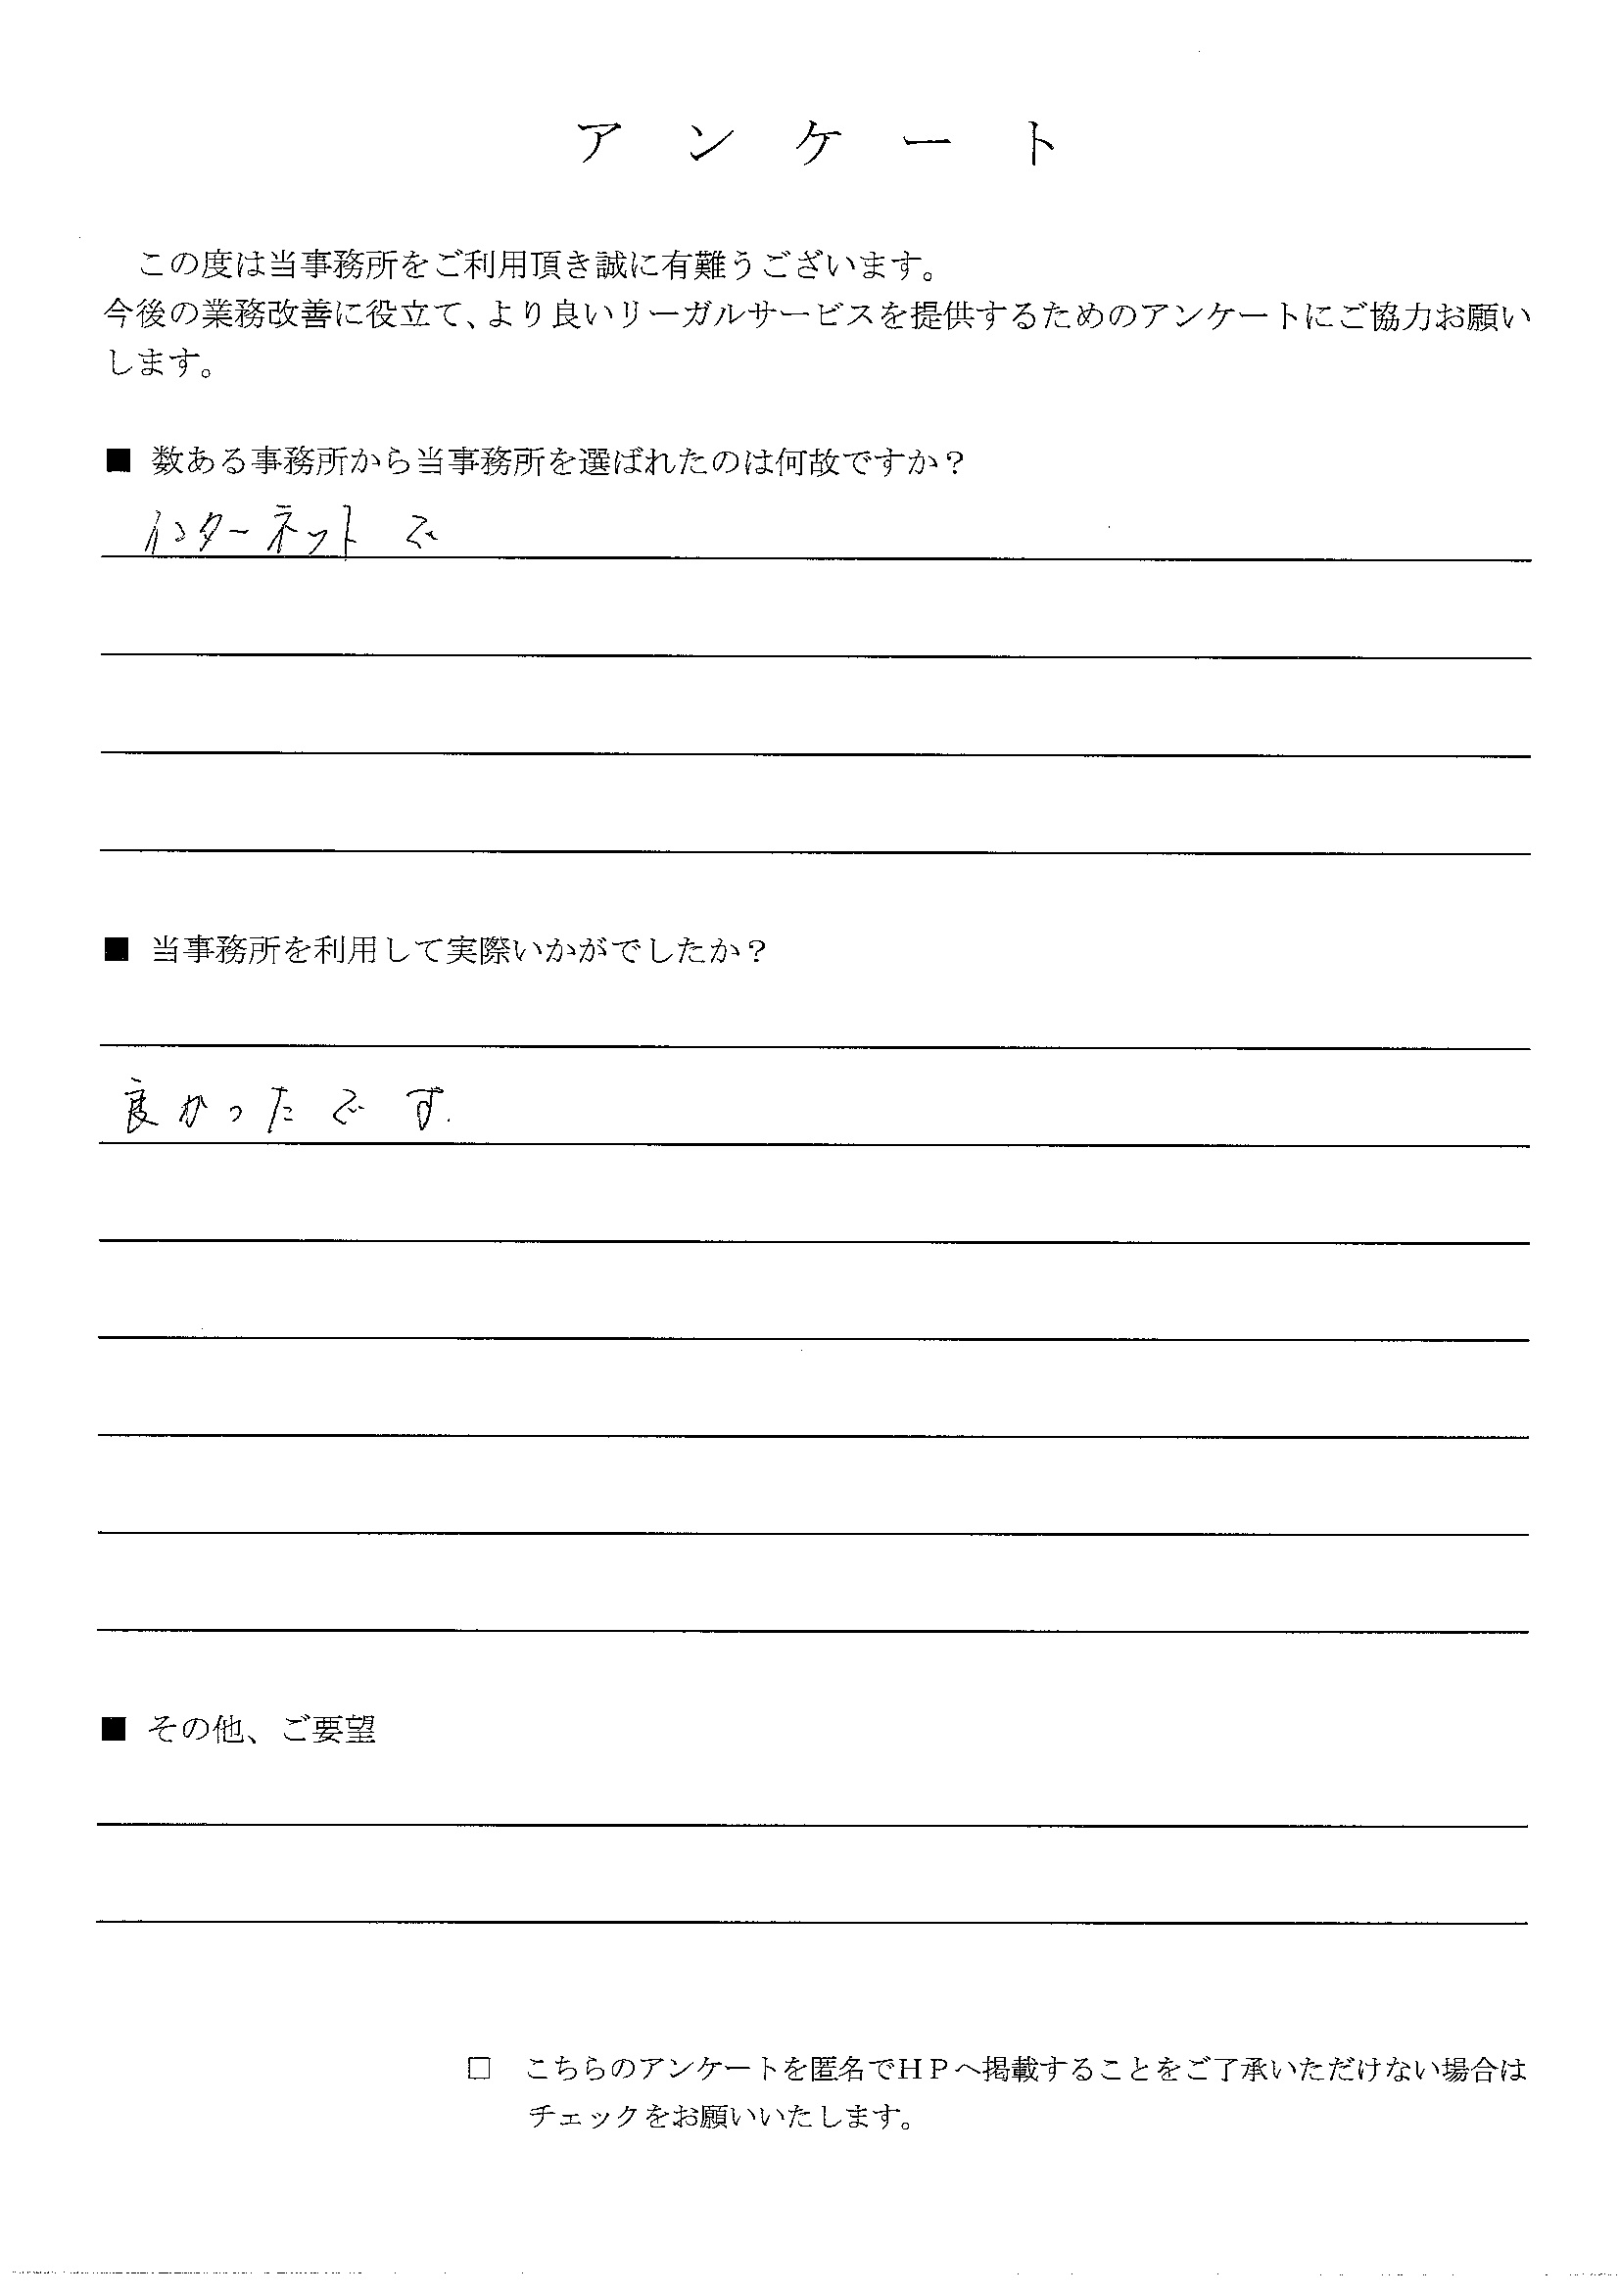 アンケート
この度は当事務所をご利用頂き誠に有難うございます。
今後の業務改善に役立て、より良いリーガルサービスを提供するためのアンケートにご協力お願い
します。
■ 数ある事務所から当事務所を選ばれたのは何故ですか？
インターネットで
■ 当事務所を利用して実際いかがでしたか？
良かったです.
■ その他、ご要望
□ こちらのアンケートを匿名でＨＰへ掲載することをご了承いただけない場合は
チェックをお願いいたします。